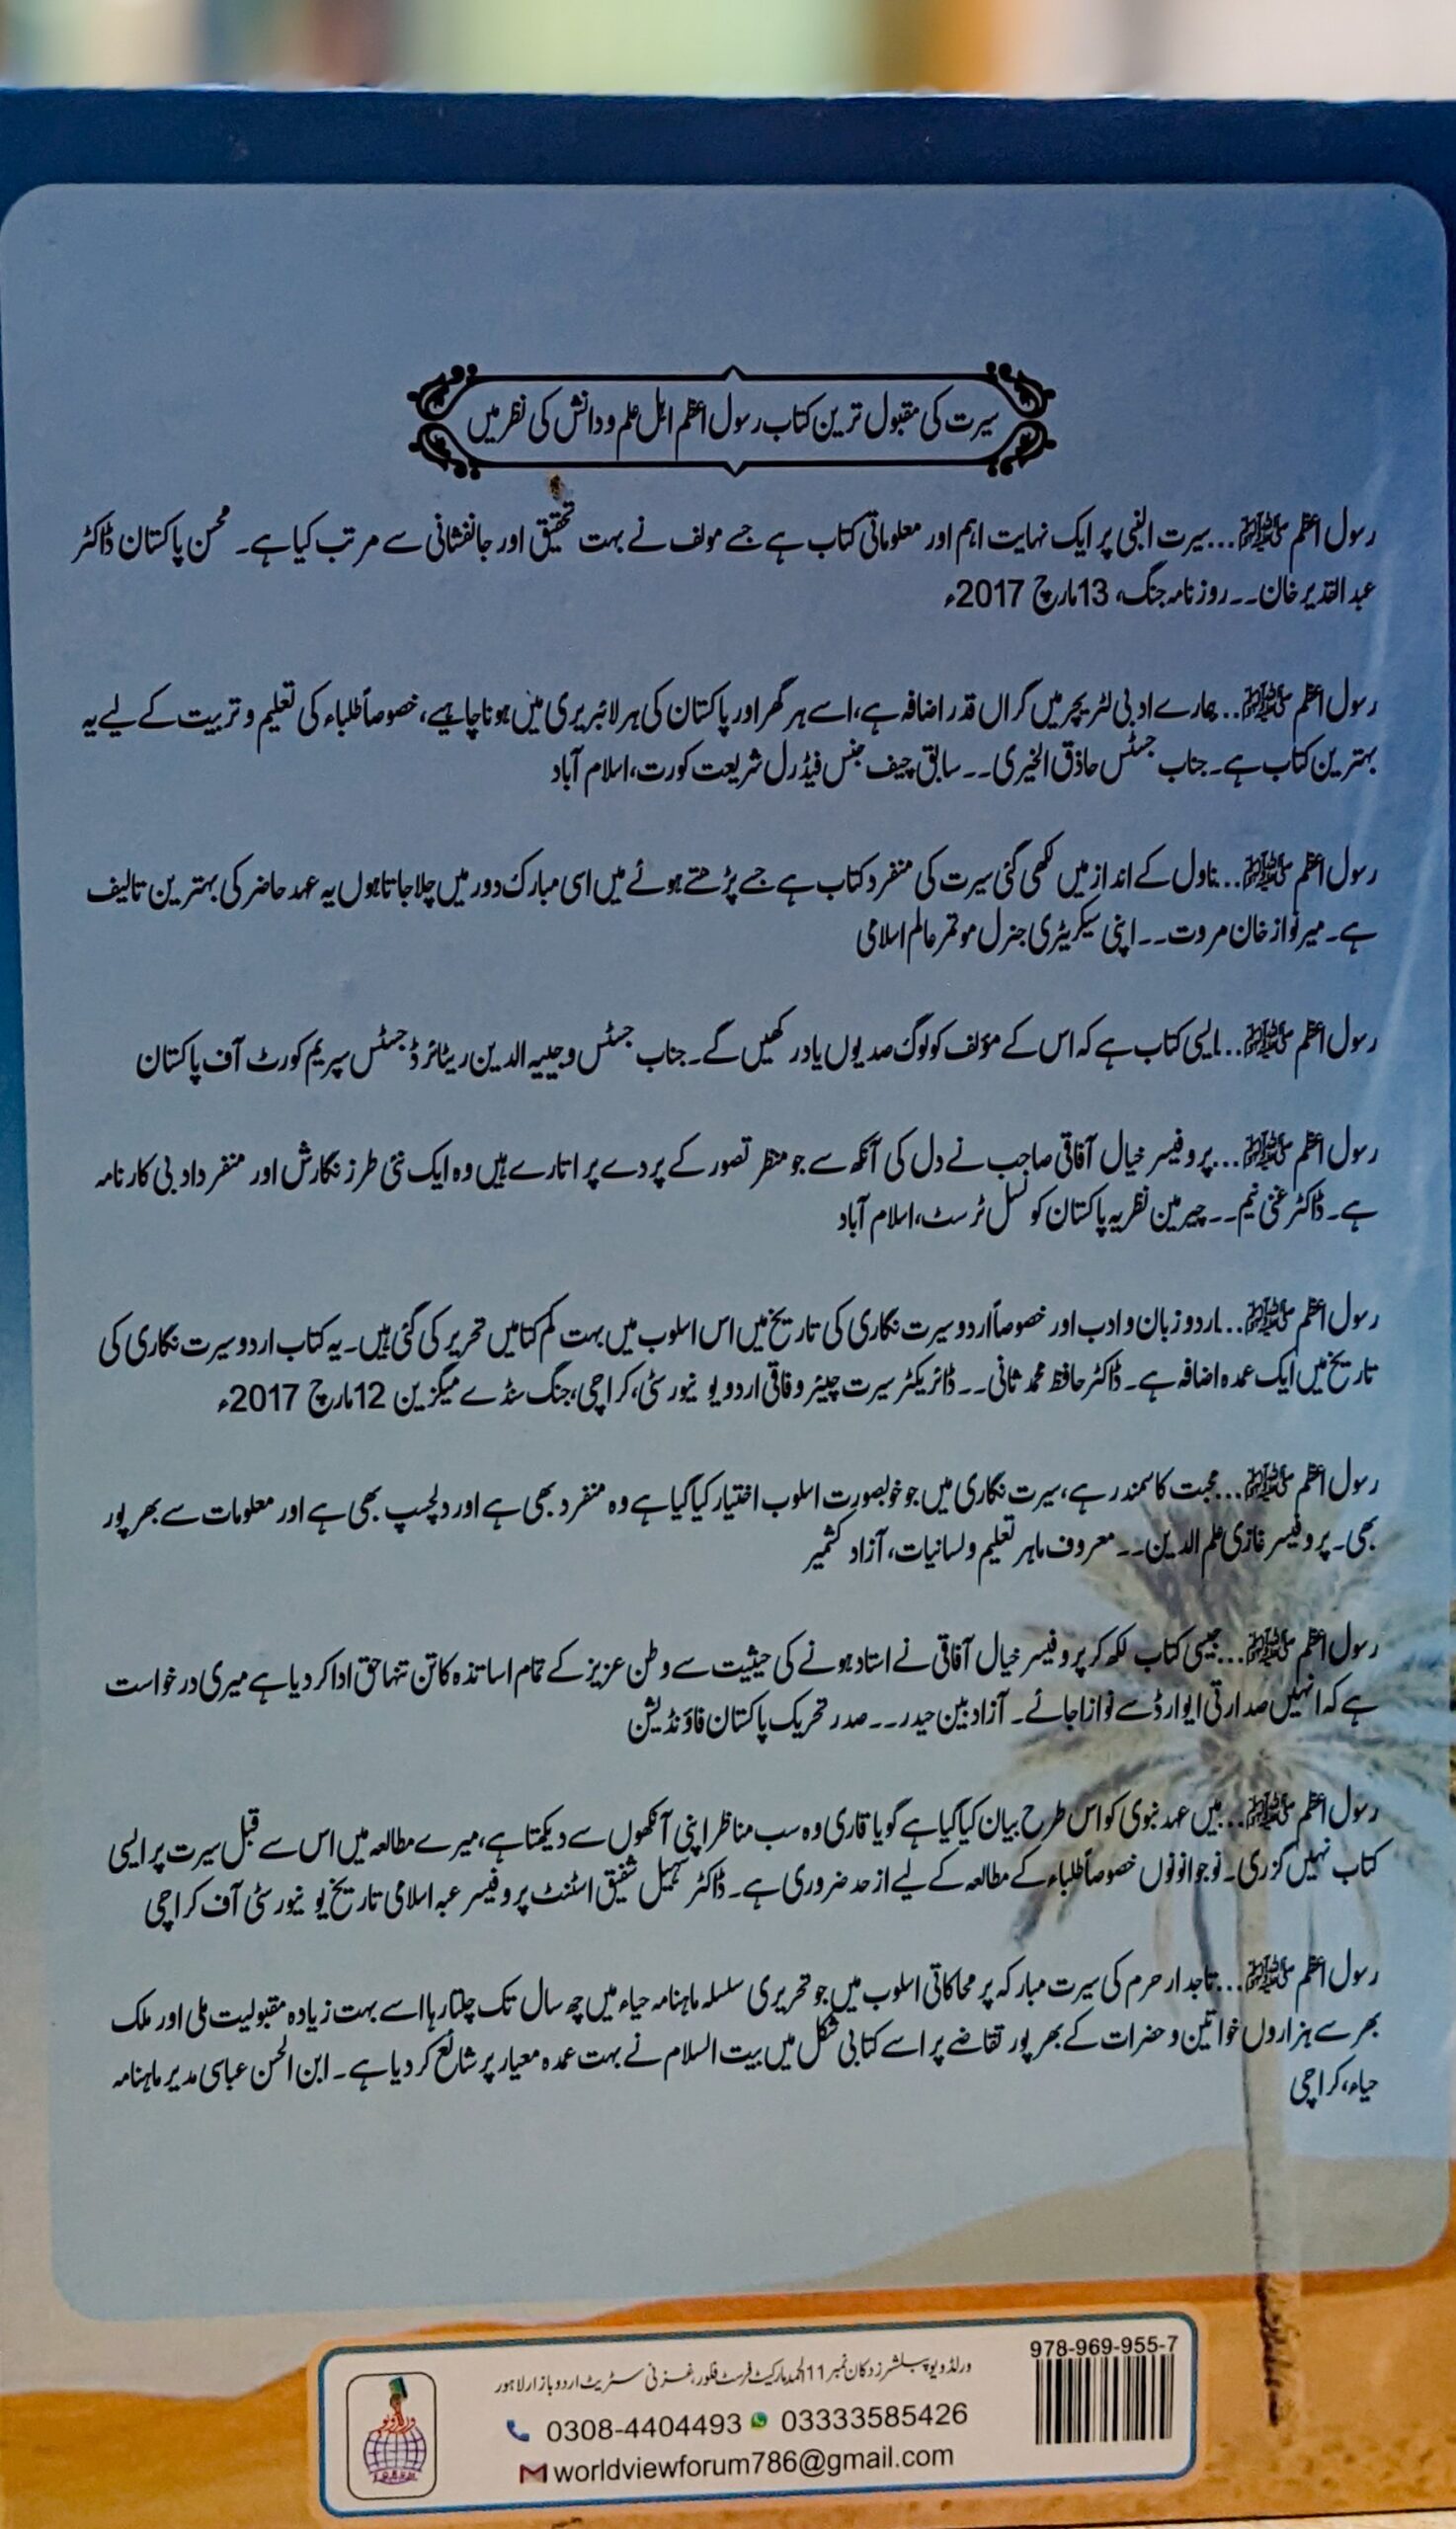 سیرت کی مقبول ترین کتاب رسول اعظم اہل علم و دانش کی نظر میں
رسول اعظم ﷺ... سیرت النبی پر ایک نہایت اہم اور معلوماتی کتاب ہے جسے مولف نے بہت تحقیق اور جانفشانی سے مرتب کیا ہے۔ محسن پاکستان ڈاکٹر
عبد القدیر خان۔۔ روزنامہ جنگ، 13 مارچ 2017ء
رسول اعظم ﷺ... ہمارے ادبی لٹریچر میں گراں قدر اضافہ ہے، اسے ہر گھر اور پاکستان کی ہر لائبریری میں ہونا چاہیے، خصوصاً طلباء کی تعلیم و تربیت کے لیے یہ
بہترین کتاب ہے۔ جناب جسٹس حاذق الخیری۔۔ سابق چیف جٹس فیڈرل شریعت کورت، اسلام آباد
رسول اعظم ﷺ... ناول کے انداز میں لکھی گئی سیرت کی منفرد کتاب ہے جسے پڑھتے ہوئے میں اسی مبارک دور میں چلا جاتا ہوں یہ عہد حاضر کی بہترین تالیف
ہے۔ میر نواز خان مروت۔۔ اپنی سیکریٹری جنرل موتمر عالم اسلامی
رسول اعظم ﷺ... ایسی کتاب ہے کہ اس کے مؤلف کو لوگ صدیوں یاد رکھیں گے۔ جناب جسٹس وجیہہ الدین ریٹائرڈ جسٹس سپریم کورٹ آف پاکستان
رسول اعظم ﷺ... پروفیسر خیال آفاقی صاحب نے دل کی آنکھ سے جو منظر تصور کے پردے پر اتارے ہیں وہ ایک نئی طرز نگارش اور منفرد ادبی کارنامہ
ہے۔ ڈاکٹر غنی نیم۔۔ چیرمین نظریہ پاکستان کونسل ٹرسٹ، اسلام آباد
رسول اعظم ﷺ... اردو زبان و ادب اور خصوصاً اردو سیرت نگاری کی تاریخ میں اس اسلوب میں بہت کم کتابیں تحریر کی گئی ہیں۔ یہ کتاب اردو سیرت نگاری کی
تاریخ میں ایک عمدہ اضافہ ہے۔ ڈاکٹر حافظ محمد ثانی۔۔ ڈائریکٹر سیرت چیئر وفاقی اردو یونیورسٹی، کراچی، جنگ سنڈے میگزین 12 مارچ 2017ء
رسول اعظم ﷺ... محبت کا سمندر ہے، سیرت نگاری میں جو خوبصورت اسلوب اختیار کیا گیا ہے وہ منفرد بھی ہے اور دلچسپ بھی ہے اور معلومات سے بھرپور
بھی۔ پروفیسر غازی علم الدین۔۔ معروف ماہر تعلیم ولسانیات، آزاد کشمیر
رسول اعظم ﷺ... جیسی کتاب لکھ کر پروفیسر خیال آفاقی نے استاد ہونے کی حیثیت سے وطن عزیز کے تمام اساتذہ کا تن تنہا حق ادا کر دیا ہے میری درخواست
ہے کہ انہیں صدارتی ایوارڈ سے نوازا جائے۔ آزاد بین حیدر۔۔ صدر تحریک پاکستان فاؤنڈیشن
رسول اعظم ﷺ... میں عہد نبوی کو اس طرح بیان کیا گیا ہے گویا قاری وہ سب مناظر اپنی آنکھوں سے دیکھتا ہے، میرے مطالعہ میں اس سے قبل سیرت پر ایسی
کتاب نہیں گزری۔ نوجوانوں خصوصاً طلباء کے مطالعہ کے لیے از حد ضروری ہے۔ ڈاکٹر سہیل شفیق اسٹنٹ پروفیسر عبہ اسلامی تاریخ یونیورسٹی آف کراچی
رسول اعظم ﷺ... تاجدار حرم کی سیرت مبارکہ پر محاکاتی اسلوب میں جو تحریری سلسلہ ماہنامہ حیاء میں چھ سال تک چلتا رہا اسے بہت زیادہ مقبولیت ملی اور ملک
بھر سے ہزاروں خواتین و حضرات کے بھرپور تقاضے پر اسے کتابی شکل میں بیت السلام نے بہت عمدہ معیار پر شائع کر دیا ہے۔ ابن الحسن عباسی مدیر ماہنامہ
حیاء، کراچی
978-969-955-7
ورلڈ ویو پبلشرز دکان نمبر 11 الحمد مارکیٹ فرسٹ فلور، غزنی سٹریٹ اردو بازار لاہور
0308-4404493 03333585426
worldviewforum786@gmail.com